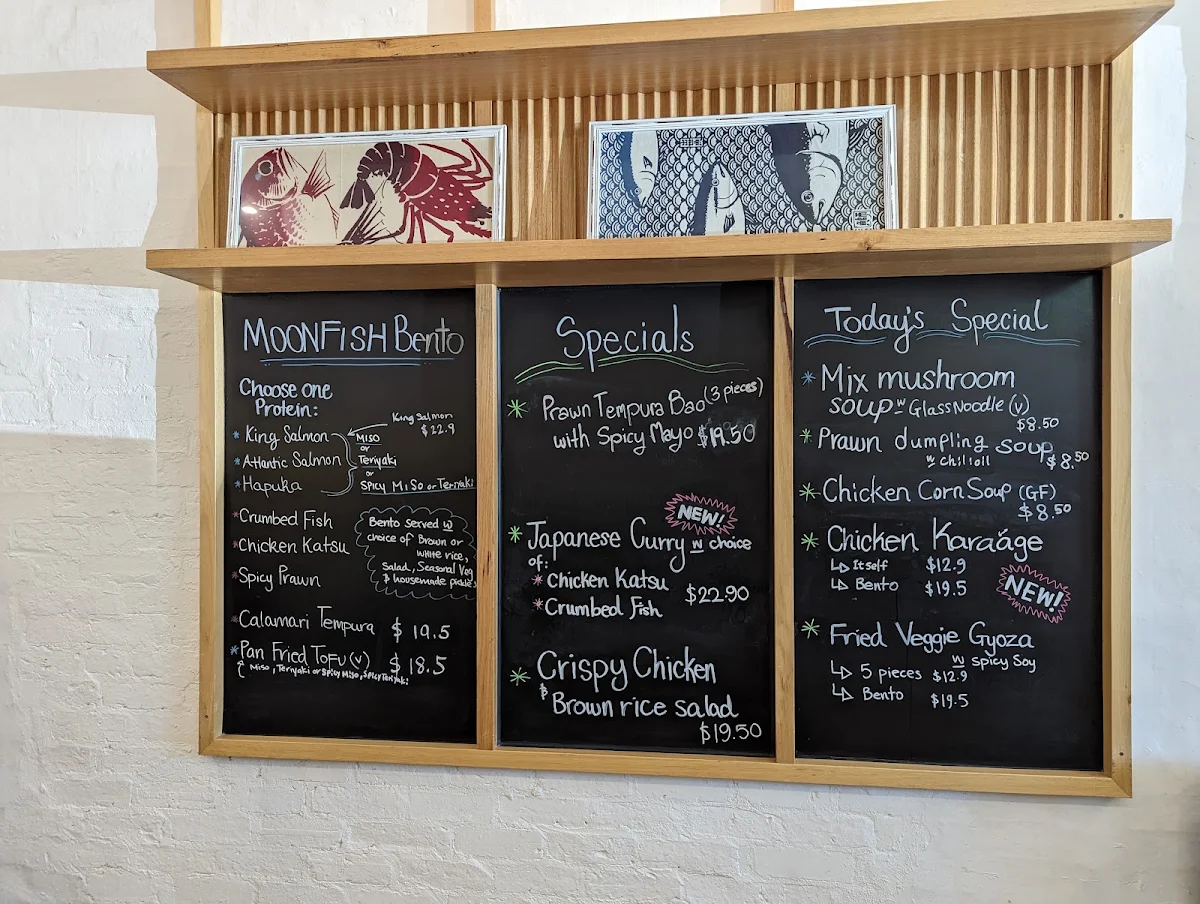 MOONFISH Bento
Choose one
Protein:
* King Salmon
* Atlantic Salmon
* Hapuka
King Salmon
$22.9
Miso
or
Teriyaki
or
Spicy Miso or Teriyaki
* Crumbed Fish
* Chicken Katsu
* Spicy Prawn
Bento served w
choice of Brown or
white rice,
Salad, Seasonal Veg
& housemade pickles
* Calamari Tempura $19.5
* Pan Fried Tofu (v) $18.5
Miso, Teriyaki or Spicy Miso, Spicy Teriyaki
Specials
* Prawn Tempura Bao (3 pieces)
with Spicy Mayo $19.50
NEW!
* Japanese Curry w choice
of:
* Chicken Katsu
* Crumbed Fish
$22.90
* Crispy Chicken
& Brown rice salad
$19.50
Today's Special
* Mix mushroom
soup w Glass Noodle (v)
$8.50
* Prawn dumpling soup
w chilioil $8.50
* Chicken Corn Soup (GF)
$8.50
* Chicken Karaáge
↳ Itself $12.9
↳ Bento $19.5
NEW!
* Fried Veggie Gyoza
w spicy Soy
↳ 5 pieces $12.9
↳ Bento $19.5